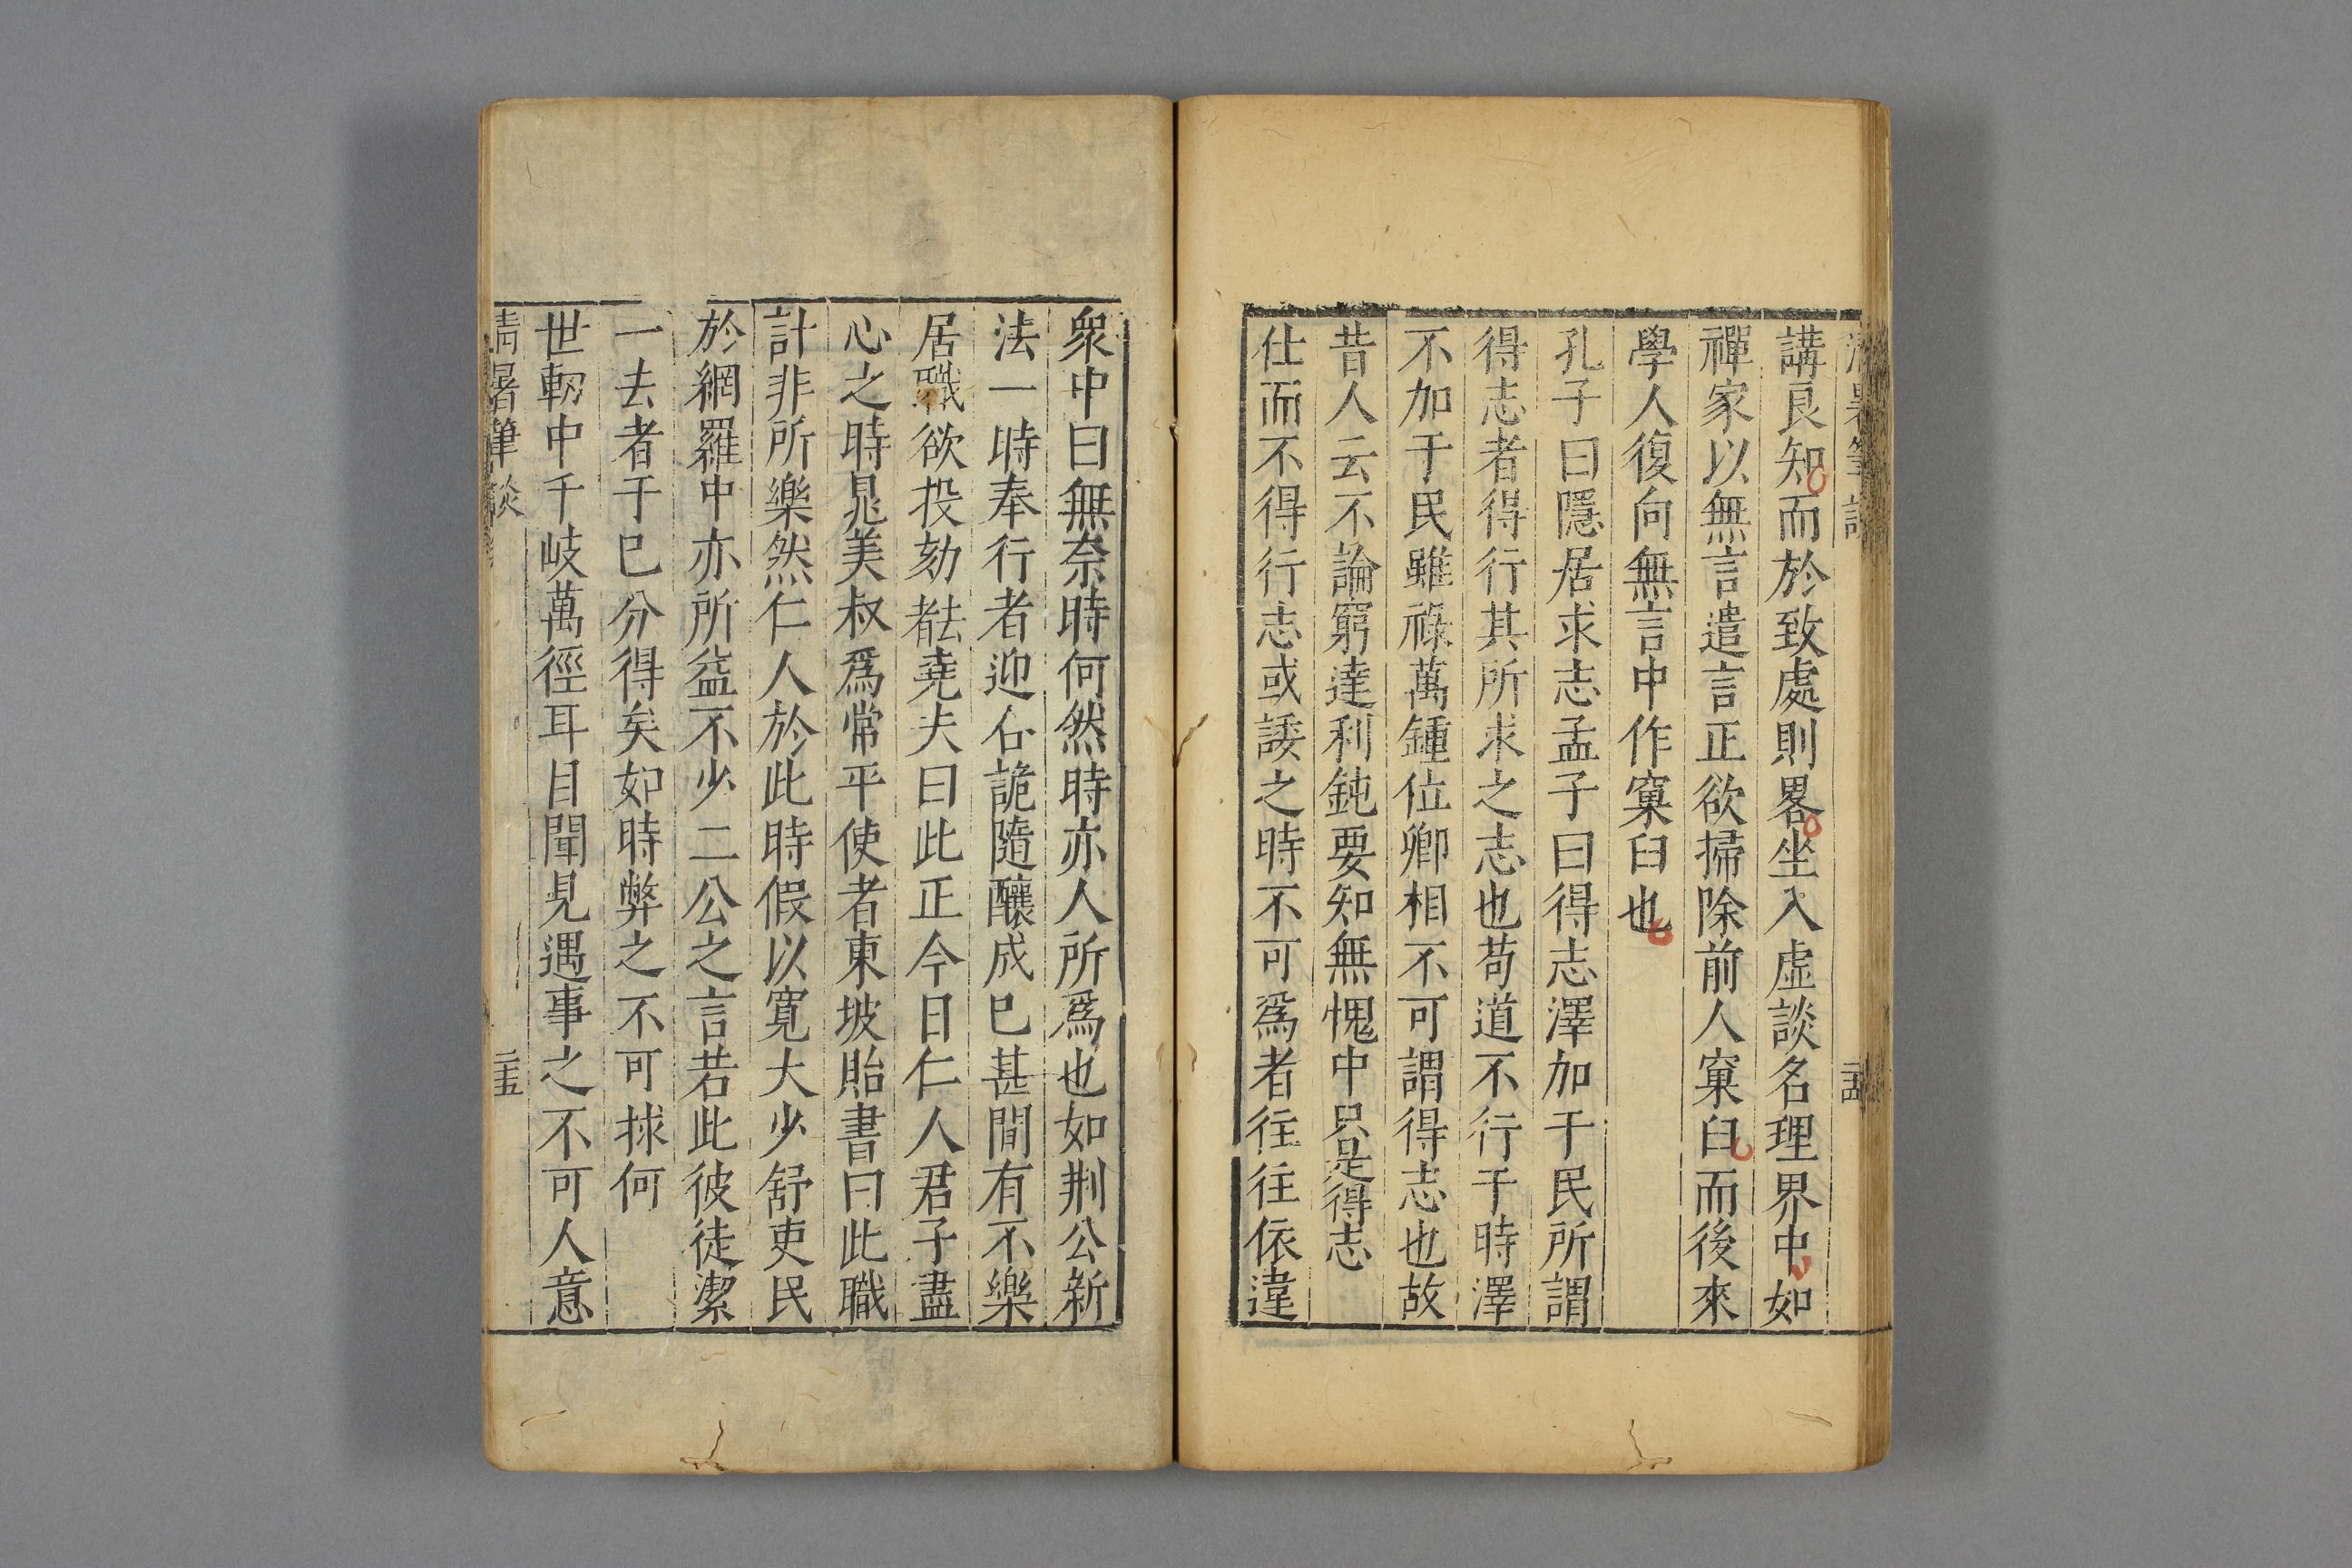 講良知而於致處則畧坐入虛談名理界中如
禪家以無言遣言正欲掃除前人窠臼而後來
學人復向無言中作窠臼也
孔子曰隱居求志孟子曰得志澤加于民所謂
得志者得行其所求之志志也苟道不行于時澤
不加于民雖祿萬鍾位卿相不可謂得志也故
昔人云不論窮達利鈍要知無愧中只是得志
仕而不得行志或諉之時不可爲者徃徃依違
衆中曰無奈時何然時亦人所爲也如荆公新
法一時奉行者迎合詭隨釀成巳甚間有不樂
居職欲投劾去者堯夫曰此正今日仁人君子盡
心之時晁美叔爲常平使者東坡貽書曰此職
計非所樂然仁人於此時假以寬大少舒吏民
於網羅中亦所益不少二公之言若此彼徒潔
一去者于巳分得矣如時弊之不可捄何
世軔中千岐萬徑耳目聞見遇事之不可人意
清暑筆談
二十五